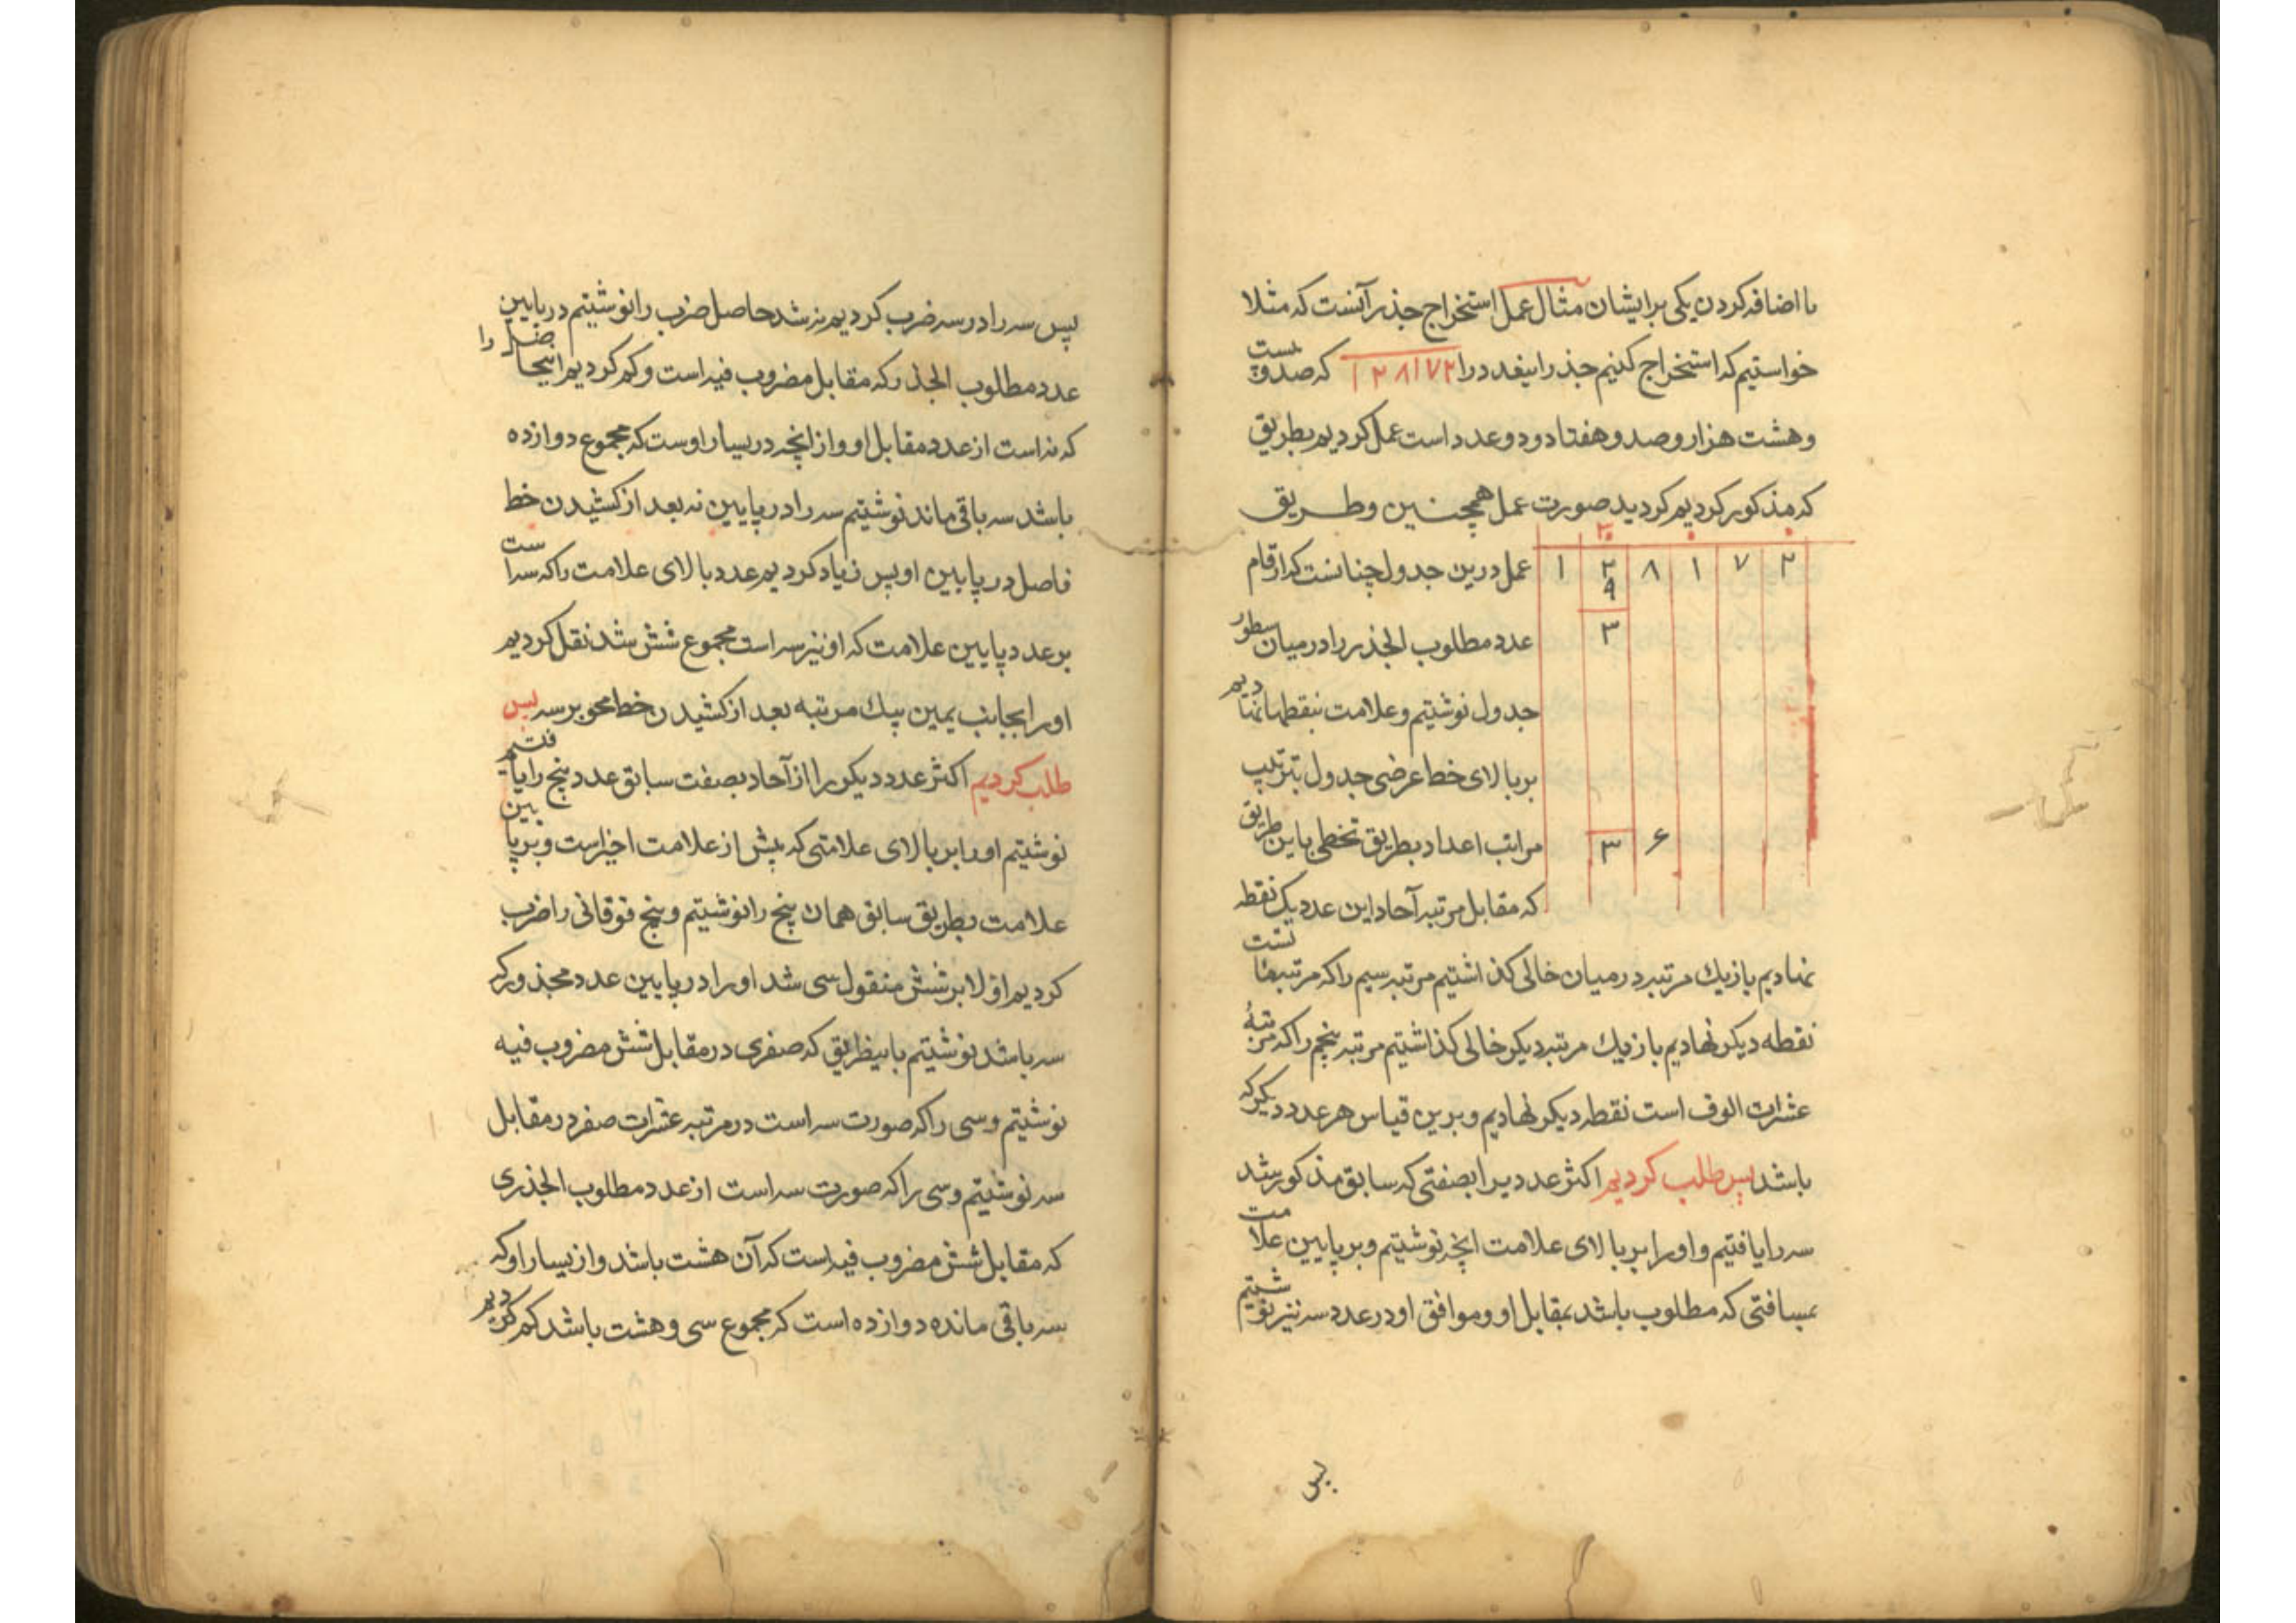 با اضافه کردن یکی برایشان مثال عمل استخراج جذر آنست که مثلا
خواستیم که استخراج کنیم جذر اینعدد را ۱۲۸۱۷۲ که صد و بیست
و هشت هزار و صد و هفتاد و دو عدد است عمل کردیم بطریق
که مذکور کردیم کردید صورت عمل همچنین و طریق
۲ ۷ ۱ ۸ ۲ ۱
۹
۳
۶ ۳
عمل درین جدول چنانست که ارقام
عدد مطلوب الجذر را در میان سطور
جدول نوشتیم و علامت بنقطها نهادیم
بر بالای خط عرضی جدول بترتیب
مراتب اعداد بطریق تخطی باین طریق
که مقابل مرتبه آحاد این عدد یک نقطه
نهادیم باز یک مرتبه در میان خالی کذاشتیم مرتبه سیم را که مرتبه مآتست
نقطه دیکر نهادیم باز یک مرتبه دیکر خالی کذاشتیم مرتبه پنجم را که مرتبهٔ
عشرات الوف است نقطه دیکر نهادیم و برین قیاس هر عدد دیکر که
باشد پس طلب کردیم اکثر عددیرا بصفتی که سابق مذکور شد
سه را یافتیم و او را بر بالای علامت انچه نوشتیم و بر پایین علامت
بمسافتی که مطلوب باشد بمقابل او و موافق او در عدد سه نیز نوشتیم
پس
پس سه را در سه ضرب کردیم نه شد حاصل ضرب را نوشتیم در پایین
عدد مطلوب الجذر که مقابل مضروب فیه است و کم کردیم اینحاصل را
که نه است از عدد مقابل او و از انچه در یسار اوست که مجموع دوازده
باشد سه باقی ماند نوشتیم سه را در پایین نه بعد از کشیدن خط
فاصل در پایین او پس زیاد کردیم عدد بالای علامت را که سه است
بر عدد پایین علامت که او نیز سه است مجموع شش شد نقل کردیم
او را بجانب یمین بیک مرتبه بعد از کشیدن خط محو بر سه پس
طلب کردیم اکثر عدد دیکر را از آحاد بصفت سابق عدد پنج را یافتیم
نوشتیم او را بر بالای علامتی که پیش از علامت اخیر است و بر پایین
علامت بطریق سابق همان پنج را نوشتیم و پنج فوقانی را ضرب
کردیم اولا بر شش منقول سی شد او را در پایین عدد مجذور که
سه باشد نوشتیم باینطریق که صفری در مقابل شش مضروب فیه
نوشتیم و سی را که صورت سه است در مرتبه عشرات صفر در مقابل
سه نوشتیم و سی را که صورت سه است از عدد مطلوب الجذری
که مقابل شش مضروب فیه است که آن هشت باشد و از یسار او که
سه باقی مانده دوازده است که مجموع سی و هشت باشد کم کردیم